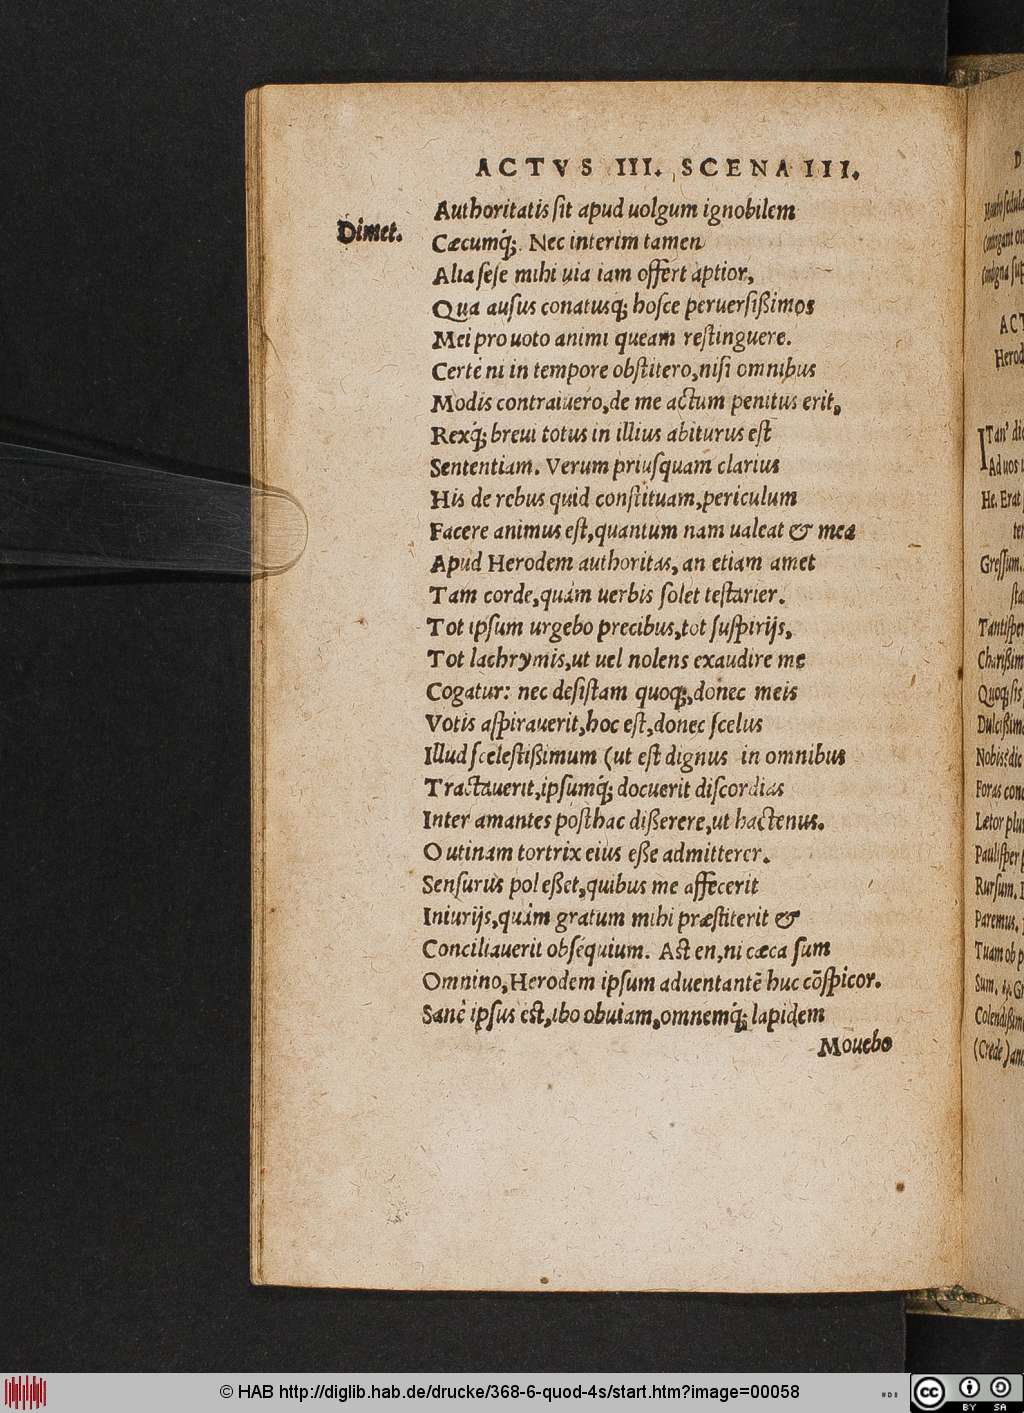 ACTVS III. SCENA III.
Authoritatis sit apud uolgum ignobilem
Dimet. Cæcumq́;. Nec interim tamen
Alia sese mihi uia iam offert aptior,
Qua ausus conatusq; hosce peruersißimos
Mei pro uoto animi queam restinguere.
Certè ni in tempore obstitero, nisi omnibus
Modis contraiuero, de me actum penitus erit,
Rexq́; breui totus in illius abiturus est
Sententiam. Verum priusquam clarius
His de rebus quid constituam, periculum
Facere animus est, quantum nam ualeat & mea
Apud Herodem authoritas, an etiam amet
Tam corde, quàm uerbis solet testarier.
Tot ipsum urgebo precibus, tot suspirijs,
Tot lachrymis, ut uel nolens exaudire me
Cogatur: nec desistam quoq;, donec meis
Votis aspirauerit, hoc est, donec scelus
Illud scelestißimum (ut est dignus in omnibus
Tractauerit, ipsumq́; docuerit discordias
Inter amantes posthac dißerere, ut hactenus.
O utinam tortrix eius eße admitterer.
Sensurus pol eßet, quibus me affecerit
Iniurijs, quàm gratum mihi præstiterit &
Conciliauerit obsequium. Ast en, ni cæca sum
Omnino, Herodem ipsum aduentantē huc cōspicor.
Sanè ipsus est, ibo obuiam, omnemq́; lapidem
Mouebo
D
ACT
Herod
ITan' dic
Ad uos
He. Erat
Gressum.
sta
Tantisper
Charißim
Quoq; sis
Dulcißime
Nobis? dic
Foras conc
Lætor plu
Paulisper
Rursum.
Paremus.
Tuam ob p
Sum.
Colendißim
(Crede) an
© HAB http://diglib.hab.de/drucke/368-6-quod-4s/start.htm?image=00058
cc
BY SA